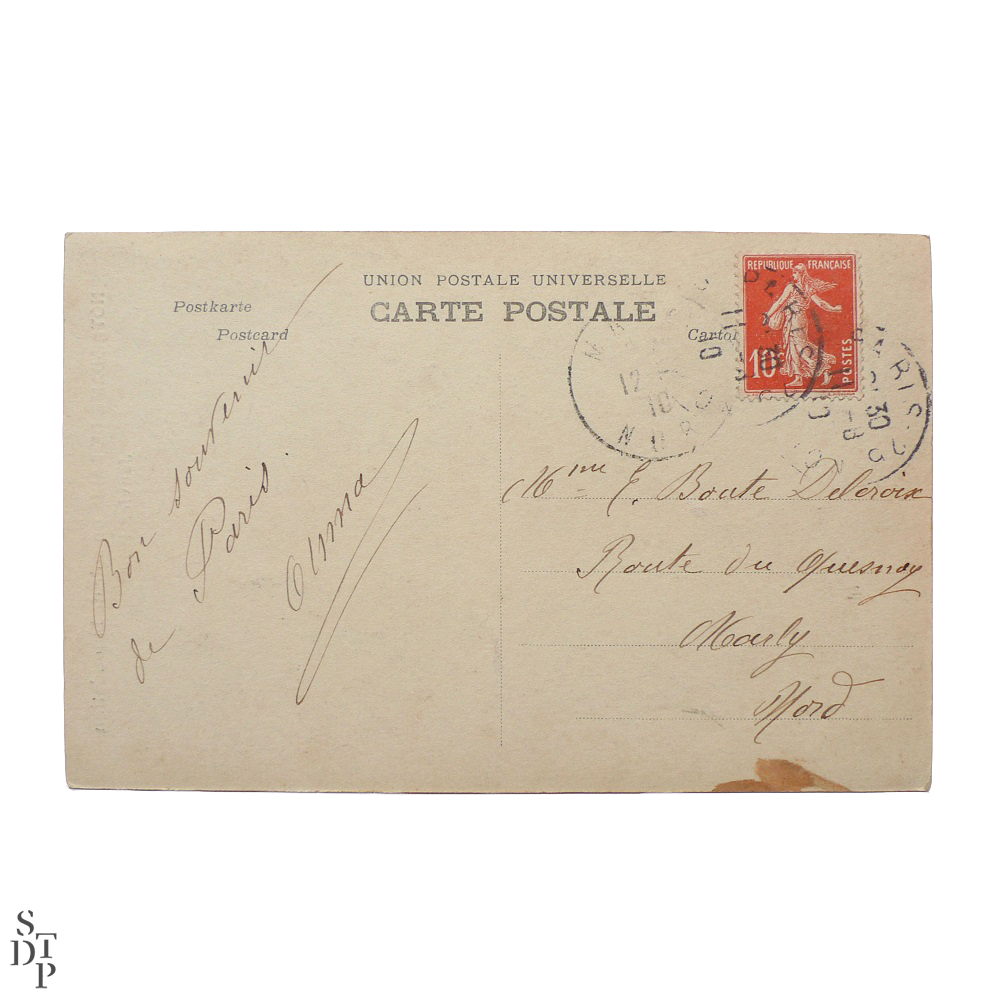 UNION POSTALE UNIVERSELLE
CARTE POSTALE
Postkarte
Postcard
Carto
REPUBLIQUE FRANÇAISE
10c
POSTES
PARIS
NORD
Bon souvenir
de Paris.
Anna
Mme E. Boute Delcroix
Route du Quesnoy
Marly
Nord
S
DT
P